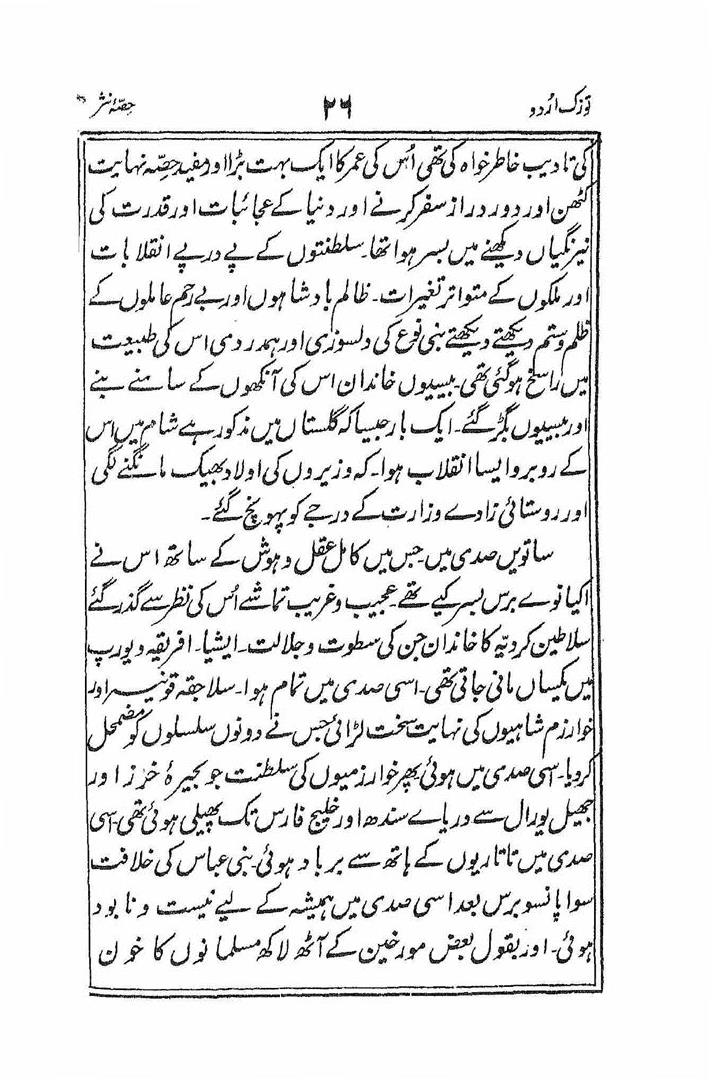 توزک اردو ۲۶ حصّۂ نثر
کی تادیب خاطر خواہ کی تھی اُس کی عمر کا ایک بہت بڑا اور مفید حِصّہ نہایت
کٹھن اور دور دراز سفر کرنے اور دنیا کے عجائبات اور قدرت کی
نیرنگیاں دیکھنے میں بسر ہوا تھا۔ سلطنتوں کے پے در پے انقلابات
اور ملکوں کے متواتر تغیرات۔ ظالم بادشاہوں اور بے رحم عاملوں کے
ظلم و ستم دیکھتے دیکھتے بنی نوع کی دلسوزی اور ہمدردی اس کی طبیعت
میں راسخ ہو گئی تھی۔ بیسیوں خاندان اس کی آنکھوں کے سامنے بنے
اور بیسیوں بگڑ گئے۔ ایک بار جیسا کہ گلستاں میں مذکور ہے شام میں اس
کے روبرو ایسا انقلاب ہوا۔ کہ وزیروں کی اولاد بھیک مانگنے لگی
اور روستائی زادے وزارت کے درجے کو پہونچ گئے۔
ساتویں صدی میں۔ جس میں کامل عقل و ہوش کے ساتھ اس نے
اکیانوے برس بسر کیے تھے۔ عجیب و غریب تماشے اُس کی نظر سے گذر گئے
سلاطین کردیّہ کا خاندان جن کی سطوت و جلالت۔ ایشیا۔ افریقہ و یورپ
میں یکساں مانی جاتی تھی۔ اسی صدی میں تمام ہوا۔ سلاجقہ قونیہ اور
خوارزم شاہیوں کی نہایت سخت لڑائی جس نے دونوں سلسلوں کو مضمحل
کر دیا۔ اسی صدی میں ہوئی پھر خوارزمیوں کی سلطنت جو بحیرۂ خزر اور
جھیل یورال سے دریاے سندھ اور خلیج فارس تک پھیلی ہوئی تھی۔ اسی
صدی میں تاتاریوں کے ہاتھ سے برباد ہوئی۔ بنی عباس کی خلافت
سوا پانسو برس بعد اسی صدی میں ہمیشہ کے لیے نیست و نابود
ہوئی۔ اور بقول بعض مورخین کے آٹھ لاکھ مسلمانوں کا خون